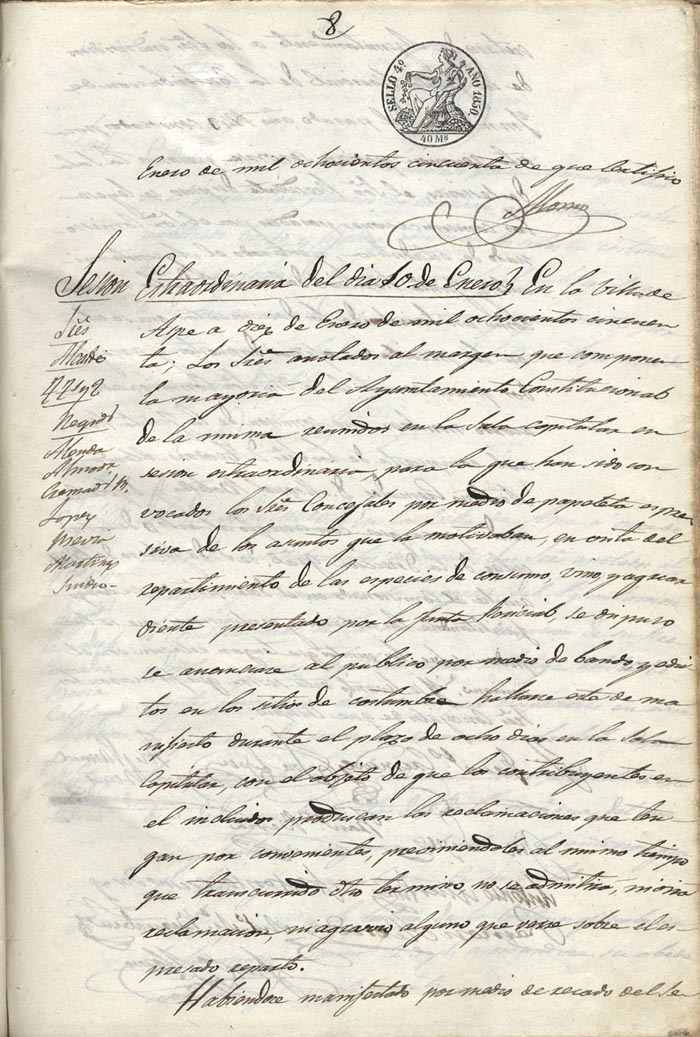 8
SELLO 4º AÑO 1850.
40 Ms
Enero de mil ochocientos cincuenta de que Certifico
Sesion Extraordinaria del dia 10 de Enero } En la Villa de
Sres
Aspe a diez de Enero de mil ochocientos cincuen
ta; Los Sres anotados al margen que componen
la mayoria del Ayuntamiento Constitucional
de la misma reunidos en la Sala capitular en
sesion extraordinaria, para la que han sido con
Cremads
Lopez
Martinez
Sindico
vocados los Sres Concejales por medio de papeleta espre
siva de los asuntos que la motivaban, en vista del
repartimiento de las especies de consumo, vino, y aguar
diente presentado por la Junta Pericial, se dispuso
se anunciase al publico por medio de bando, y edic
tos en los sitios de costumbre hallarse este de ma
nifiesto durante el plazo de ocho dias en la Sala
Capitular, con el objeto de que los contribuyentes en
el incluidos produscan las reclamaciones que ten
gan por convenientes, previniendoles al mismo tiempo
que transcurrido dho termino no se admitira, ninguna
reclamacion, ni agravio alguno que verse sobre el es
presado reparto.
Habiendose manifestado por medio de recado del Se